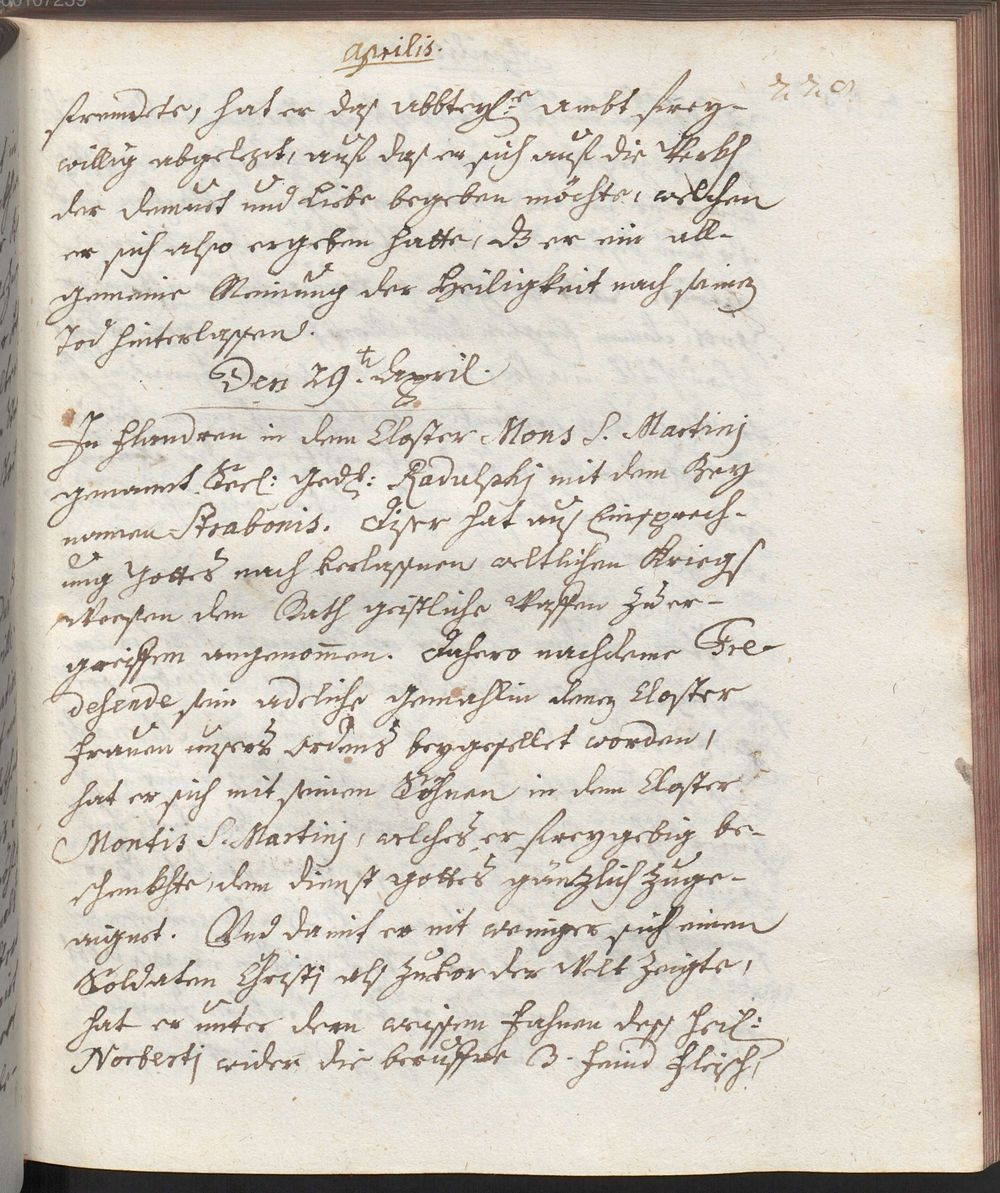 Aprilis.
228
frembdete, hat er das Abbteyl: Ambt frey-
willig abgelegt, auf das er sich auf die Werkh
der Demuet und Liebe begeben möchte, welchen
er sich also ergeben hatte, dz er ein all-
gemeine Meinung der Heiligkeit nach seinem
Tod hinterlassen.
Den 29.t April.
In Flandren in dem Closter Mons S. Martinj
genannt Seel: Gedh: Radulphj mit dem Bey
namen Strabonis. Diser hat aus Einsprech-
ung Gottes nach verlassnen weltlichen Kriegs
Weesen den Rath geistliche Waffen zu er-
greiffen angenommen. Dahero nachdeme Fre-
desende sein adeliche Gemahlin denen Closter
Frauen unsers Ordens beygesellet worden,
hat er sich mit seinen Söhnen in dem Closter
Montis S. Martinj, welches er freygebig be-
schenkhte, dem Dienst Gottes gäntzlich zuge-
aignet. Und damit er nit weniger sich einen
Soldaten Christj als zuvor der Welt zeigte,
hat er unter dem weissen Fahnen dess Heil:
Norbertj wider die beruffne 3. Feind Fleisch,